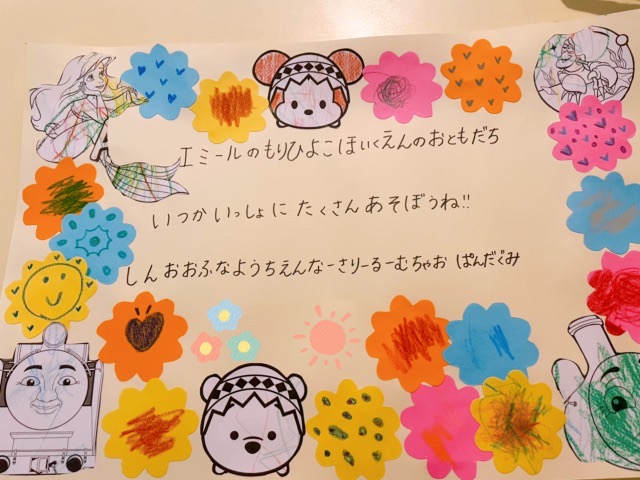 エミールのもりひよこほいくえんのおともだち
いつかいっしょに たくさん あそぼうね!!
しんおおふなようちえんなーさりーるーむちゃお ぱんだぐみ